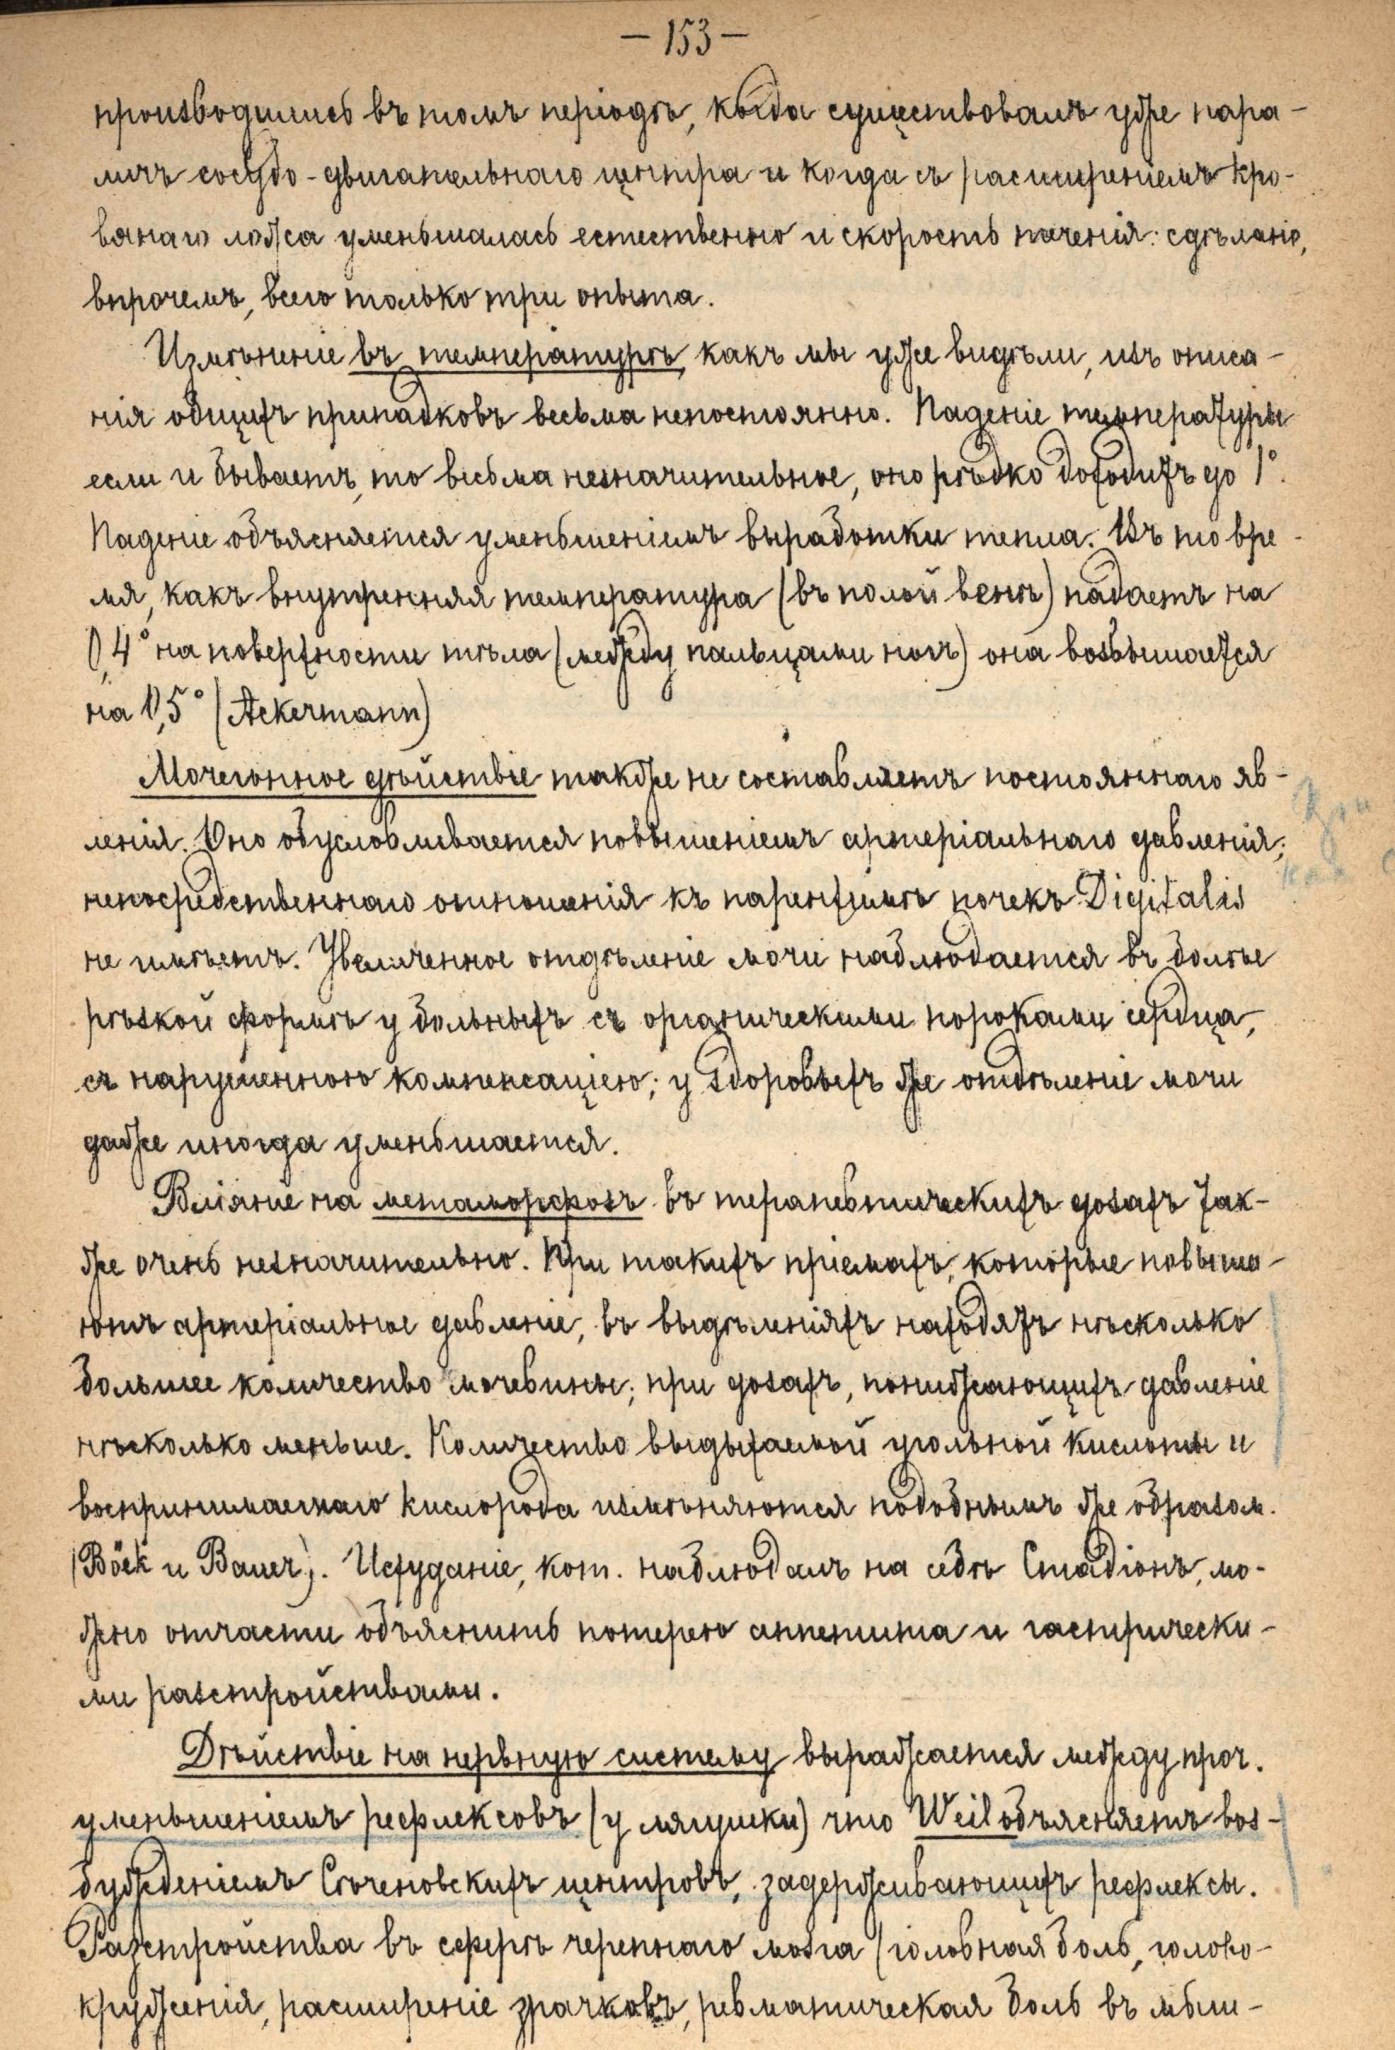 — 153 —
производились въ томъ періодѣ, когда существовалъ уже пара-
личъ сосудо-двигательнаго центра и когда съ расширеніемъ кро-
вянаго ложса уменьшалась естественно и скорость теченія: сдѣлано,
впрочемъ, всего только три опыта.
Измѣненіе въ температурѣ, какъ мы уже видѣли, изъ описа-
нія общихъ припадковъ весьма непостоянно. Паденіе температуры
если и бываетъ, то весьма незначительное, оно рѣдко доходитъ до 1°.
Паденіе объясняется уменьшеніемъ выработки тепла. Въ то вре-
мя, какъ внутренняя температура (въ полой венѣ) падаетъ на
0,4° на поверхности тѣла (между пальцами ногъ) она возвышается
на 0,5° (Ackermann)
Мочегонное дѣйствіе также не составляетъ постояннаго яв-
ленія. Оно обусловливается повышеніемъ артеріальнаго давленія;
непосредственнаго отношенія къ паренхимѣ почекъ Digitalis
не имѣетъ. Увеличенное отдѣленіе мочи наблюдается въ болѣе
рѣзкой формѣ у больныхъ съ органическими пороками сердца,
съ нарушенною компенсаціею; у здоровыхъ же отдѣленіе мочи
даже иногда уменьшается.
Вліяніе на метаморфозъ въ терапевтическихъ дозахъ так-
же очень незначительно. При такихъ пріемахъ, которые повыша-
ютъ артеріальное давленіе, въ выдѣленіяхъ находятъ нѣсколько
большее количество мочевины; при дозахъ, понижающихъ давленіе
нѣсколько меньше. Количество выдыхаемой угольной кислоты и
воспринимаемаго кислорода измѣняются подобнымъ же образом.
(Böek и Bauer). Исхуданіе, кот. наблюдалъ на себѣ Стадіонъ, мо-
жно отчасти объяснить потерею аппетита и гастрически-
ми разстройствами.
Дѣйствіе на нервную систему выражается между проч.
уменьшеніемъ рефлексовъ (у лягушки) что Weil объясняетъ воз-
бужденіемъ Сѣченовскихъ центровъ, задерживающихъ рефлексы.
Разстройства въ сферѣ черепнаго мозга (головная боль, голово-
круженія, расширеніе зрачковъ, ревматическая боль въ мыш-